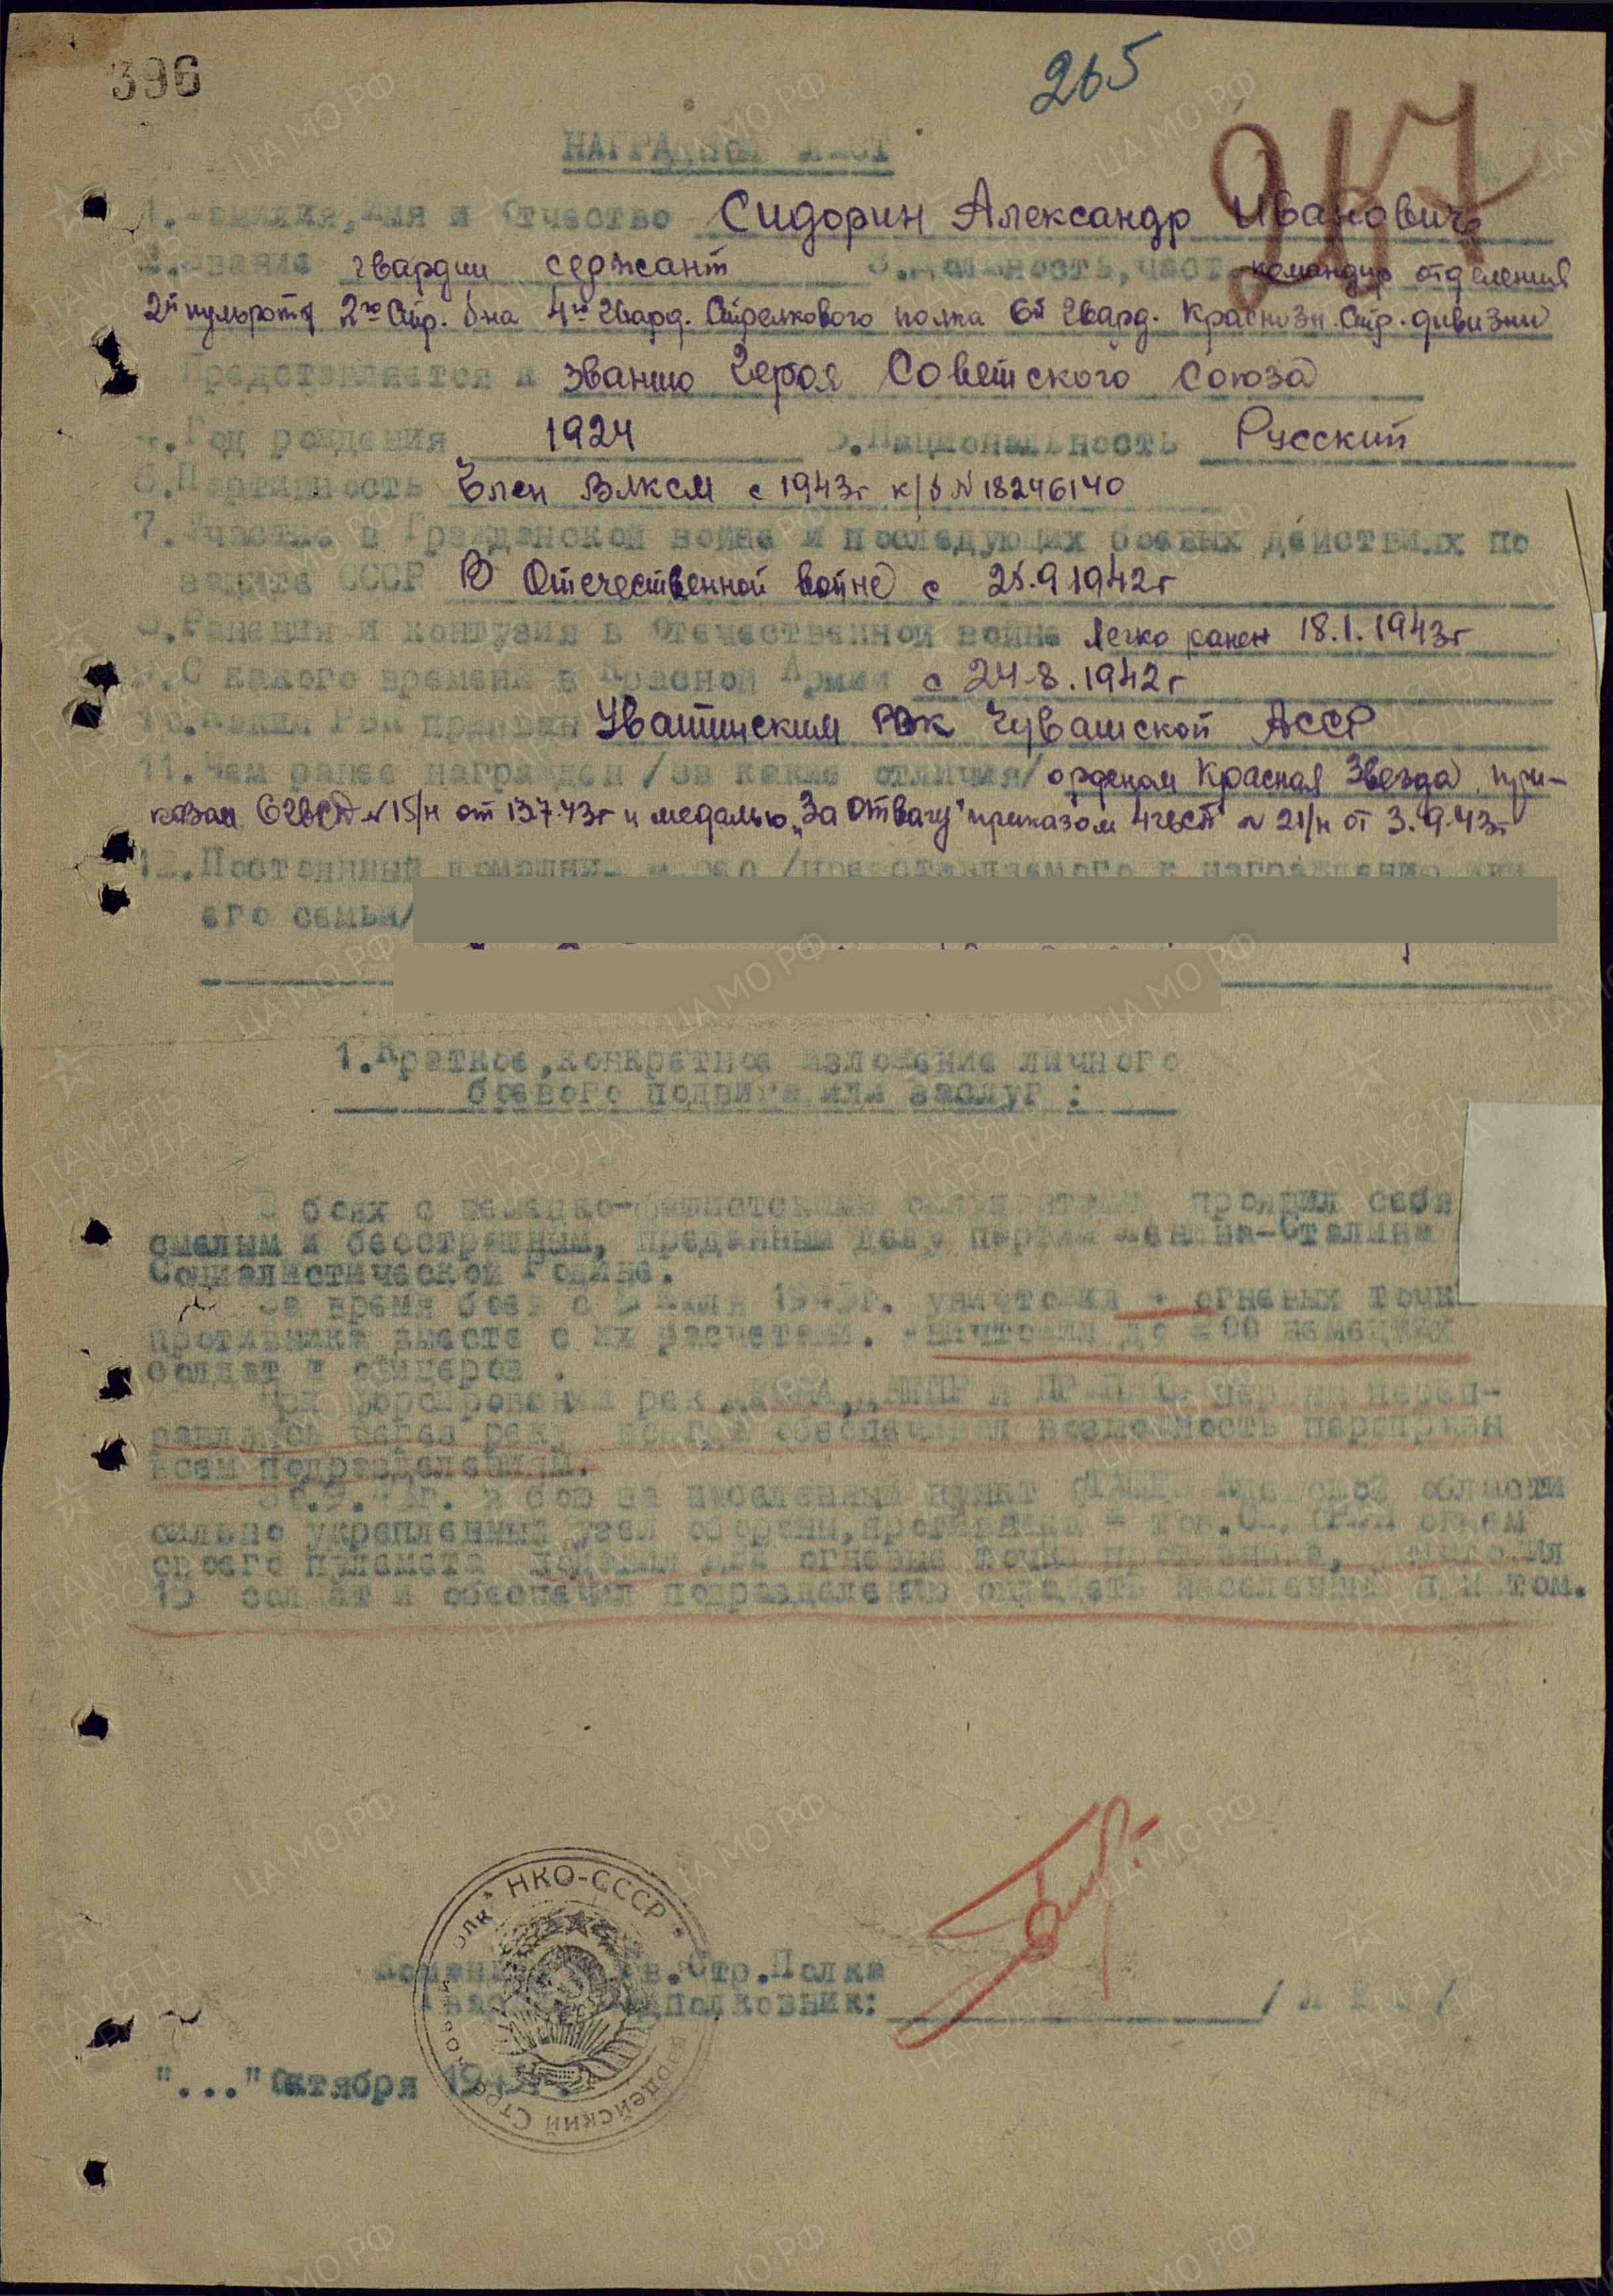 396
265
НАГРАДНОЙ ЛИСТ
1. Фамилия, Имя и Отчество Сидорин Александр Иванович
2. Звание гвардии сержант 3. Должность, часть командир отделения
2й пульроты 2го Стр. б-на 4го Гвард. Стрелкового полка 6й Гвард. Краснозн. Стр. дивизии
Представляется к званию Героя Советского Союза
4. Год рождения 1924 5. Национальность Русский
6. Партийность Член ВЛКСМ с 1943г к/б N 18246140
7. Участие в Гражданской войне и последующих боевых действиях по
защите СССР В Отечественной войне с 25.9 1942г
8. Ранения и контузия в Отечественной войне Легко ранен 18.1.1943г
9. С какого времени в Красной Армии с 24-8.1942г
10. Каким РВК призван РВК Чувашской АССР
11. Чем ранее награжден /за какие отличия/ орденом Красная Звезда при-
казом 6 гвсд N 15/н от 13.7.43г и медалью „За Отвагу" приказом 4 гвсп N 21/н от 3.9.43г
12. Постоянный /представляемого к награждению или
его семьи/
1. Краткое, конкретное изложение личного
боевого подвига или заслуг :
В боях с немецко-фашистскими проявил себя
смелым и бесстрашным, преданным делу партии Ленина-Сталина
Социалистической Родине.
За время боев с 5 1943г. уничтожил огневых точки
противника вместе с их расчетами. Уничтожил до немецких
солдат и офицеров .
При форсировании рек ДЕСНА, ДНЕПР и ПРИПЯТЬ первым переп-
равлялся через реку обеспечивал возможность переправы
всем подразделениям.
в бою за населенный пункт области
сильно укрепленный узел обороны, противника – тов. СИДОРИН огнем
своего пулемета подавил две огневые точки противника, уничтожил
15 солдат и обеспечил подразделению овладеть населенным пунктом.
НКО-СССР
Командир Гв. Стр. Полка
Гвардии подполковник:
"..." Октября 1943г.
ЦА МО РФ
ПАМЯТЬ НАРОДА